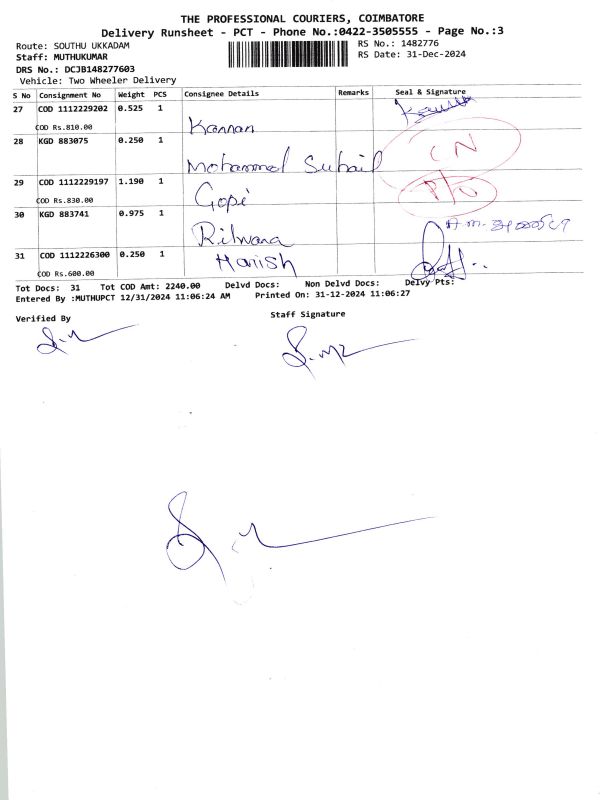 THE PROFESSIONAL COURIERS, COIMBATORE
Delivery Runsheet - PCT - Phone No.:0422-3505555 - Page No.:3
Route: SOUTHU UKKADAM
RS No.: 1482776
Staff: MUTHUKUMAR
RS Date: 31-Dec-2024
DRS No.: DCJB148277603
Vehicle: Two Wheeler Delivery
S No Consignment No Weight PCS Consignee Details Remarks Seal & Signature
27 COD 1112229202 0.525 1
COD Rs.810.00 Kannan
28 KGD 883075 0.250 1
Mohammed Suhail CN
29 COD 1112229197 1.190 1
COD Rs.830.00 Gopi P/O
30 KGD 883741 0.975 1
Rilwana
31 COD 1112226300 0.250 1 Harish
COD Rs.600.00
Tot Docs: 31 Tot COD Amt: 2240.00 Delvd Docs: Non Delvd Docs: Delvy Pts:
Entered By :MUTHUPCT 12/31/2024 11:06:24 AM Printed On: 31-12-2024 11:06:27
Verified By Staff Signature